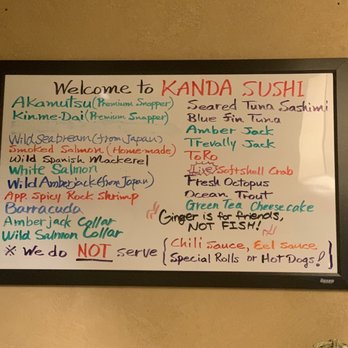 Welcome to KANDA SUSHI
Akamutsu (Premium Snapper)
Kinme-Dai (Premium Snapper)
Wild Seabream (from Japan)
Smoked Salmon (Home-made)
Wild Spanish Mackerel
White Salmon
Wild Amberjack (from Japan)
App. Spicy Rock Shrimp
Barracuda
Amberjack Collar
Wild Salmon Collar
Seared Tuna Sashimi
Blue fin Tuna
Amber Jack
Trevally Jack
ToRo
Live Softshell Crab
Fresh Octopus
Ocean Trout
Green Tea Cheesecake
Ginger is for friends,
NOT FISH!
※ We do NOT serve { Chili Sauce, Eel Sauce,
Special Rolls or Hot Dogs! }